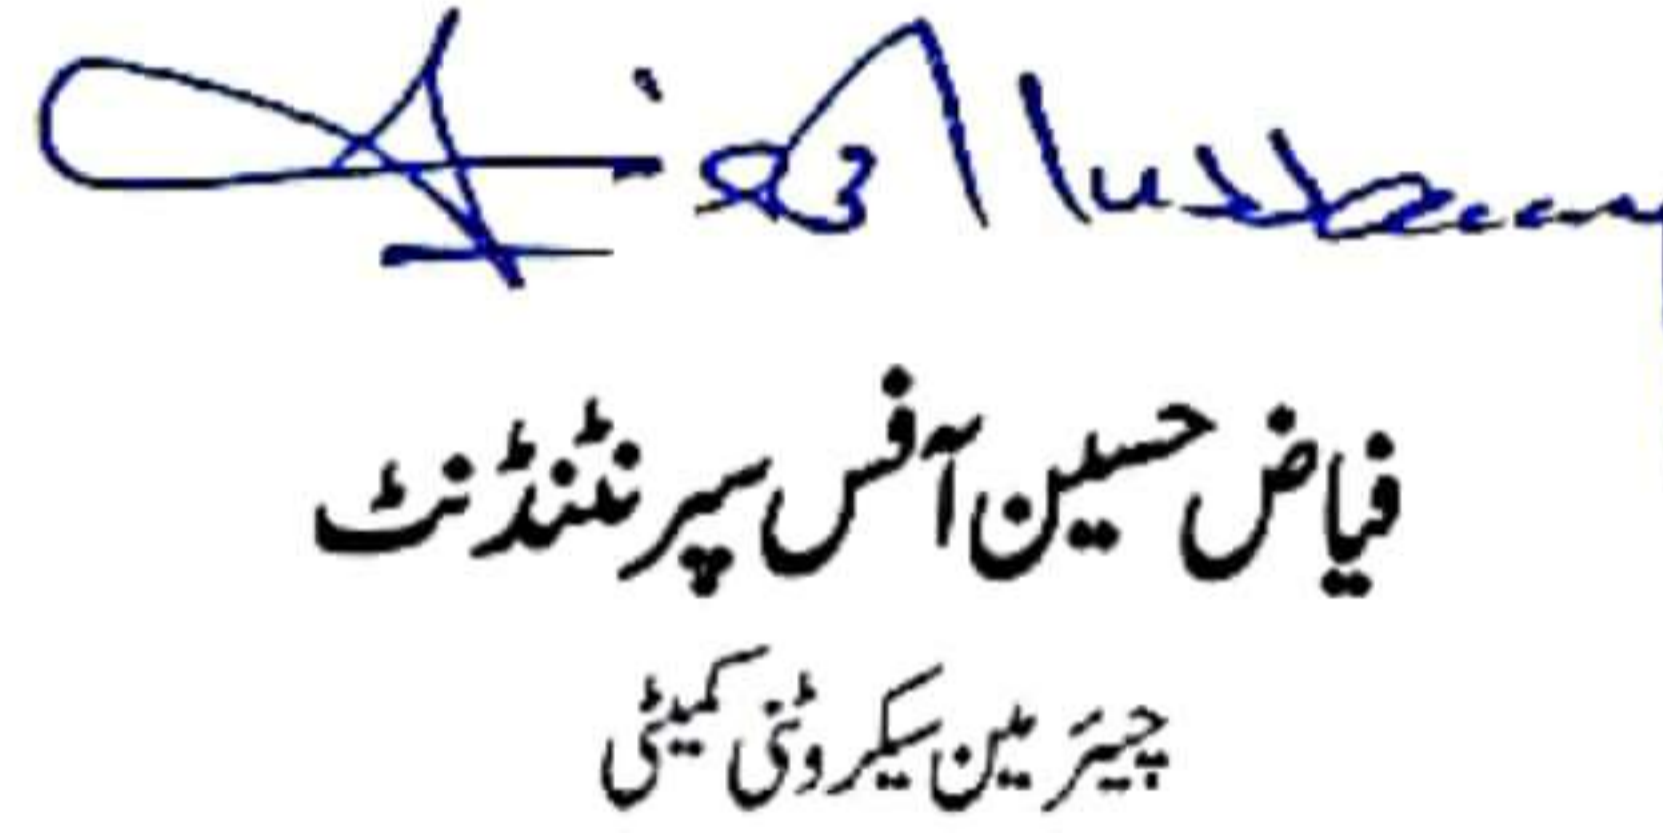 فیاض حسین آفس سپرنٹنڈنٹ
چیئر مین سیکروٹنی کمیٹی